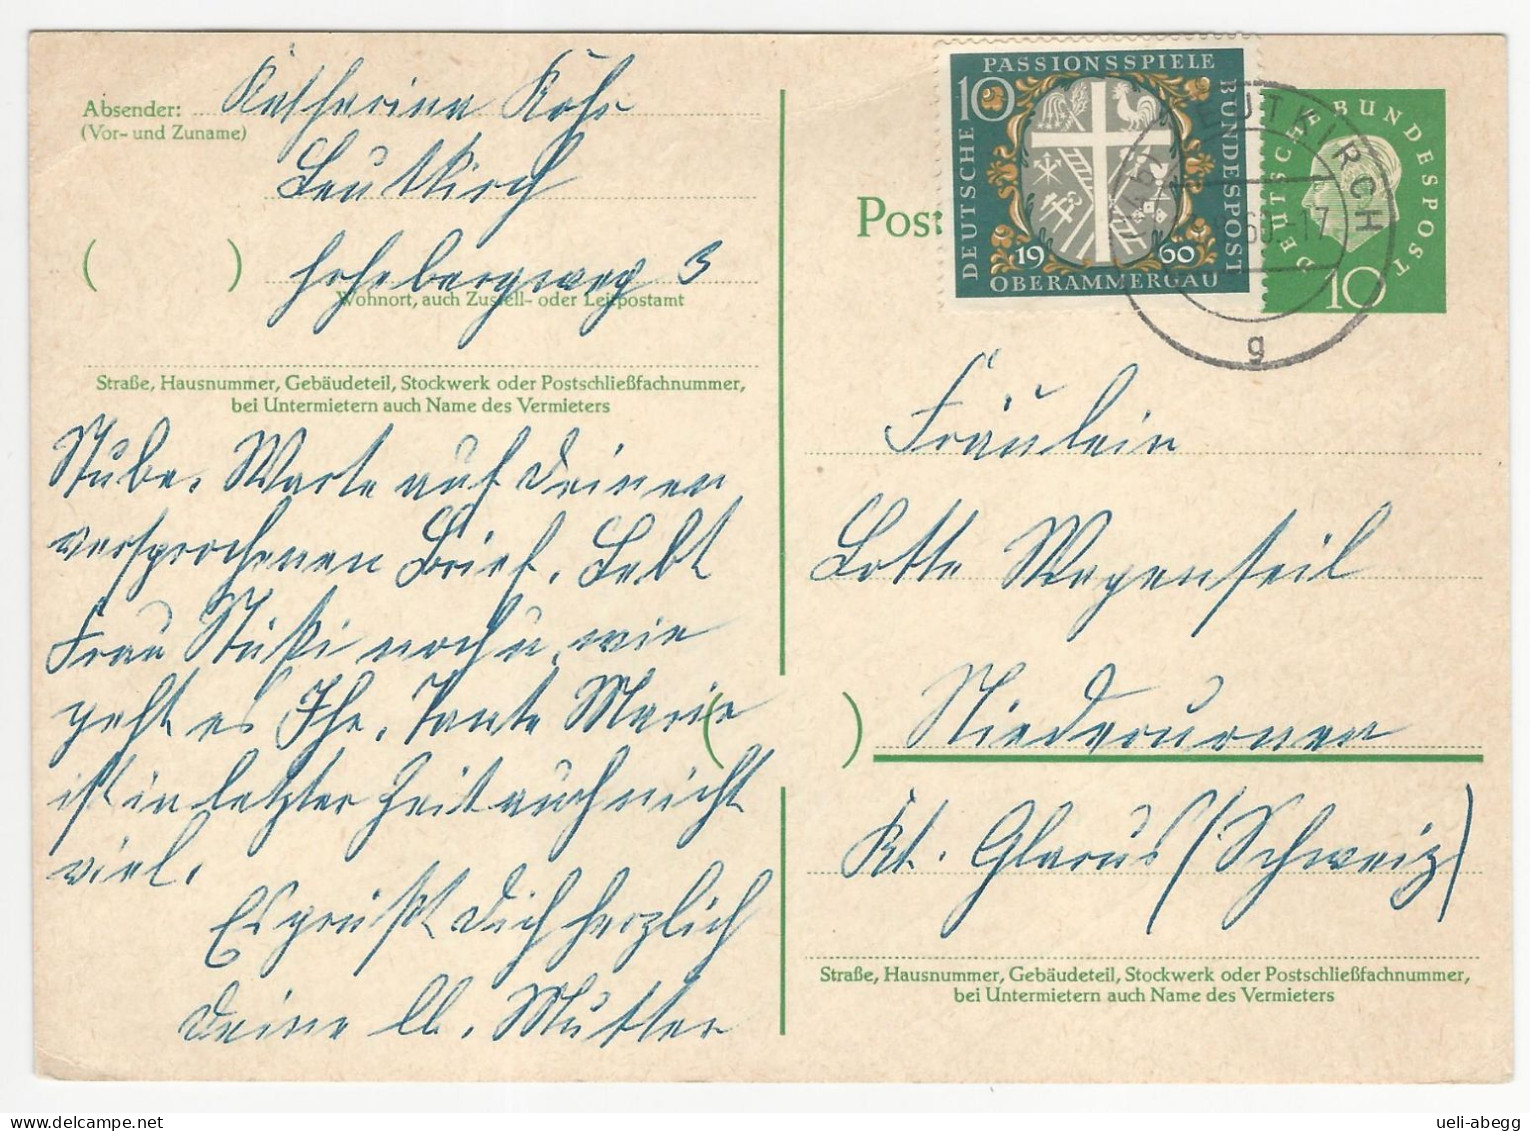 Absender: Katharina Köhr
(Vor- und Zuname)
Leutkirch
( ) Hohebergweg 3
Wohnort, auch Zustell- oder Leitpostamt
Straße, Hausnummer, Gebäudeteil, Stockwerk oder Postschließfachnummer,
bei Untermietern auch Name des Vermieters
Stube. Warte auf Deinen
versprochenen Brief. Lebt
Frau noch u. wie
geht es Ihr. Tante Marie
ist in letzter Zeit auch nicht
viel.
Es grüßt Dich herzlich
Deine lb. Mutter
PASSIONSSPIELE
10
DEUTSCHE BUNDESPOST
1960
OBERAMMERGAU
LEUTKIRCH
60-17
g
DEUTSCHE BUNDESPOST
10
Post
Fräulein
Lotte Wagenseil
( ) Niederurnen
Kt. Glarus (Schweiz)
Straße, Hausnummer, Gebäudeteil, Stockwerk oder Postschließfachnummer,
bei Untermietern auch Name des Vermieters
ueli-abegg